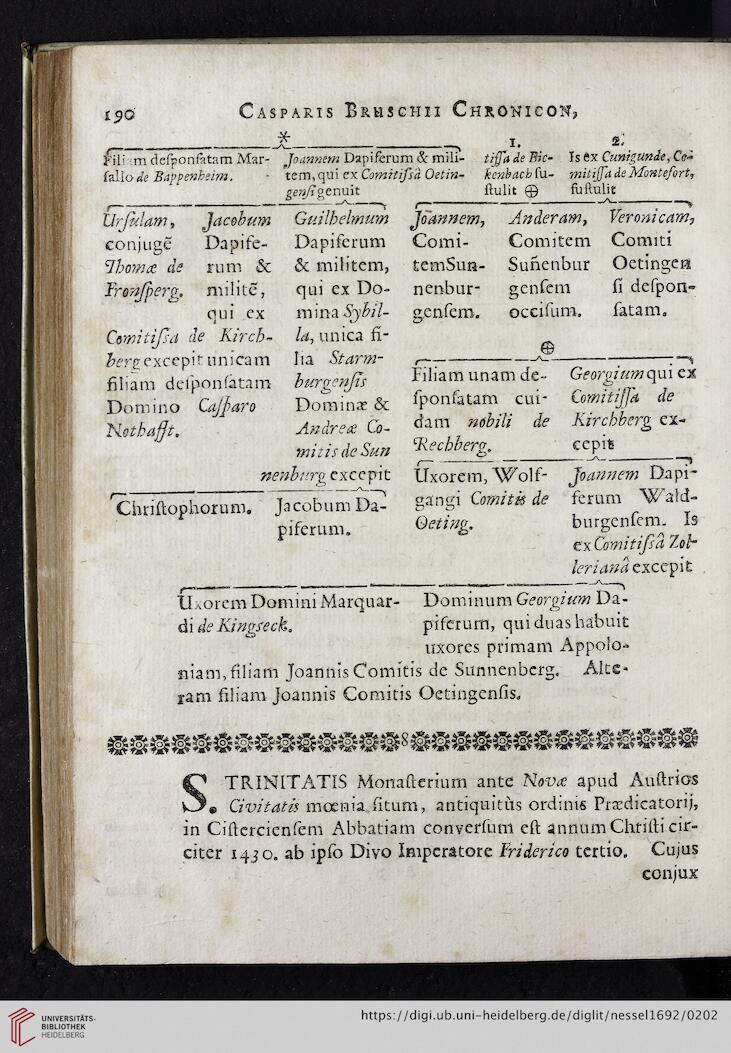 190 CASPARIS BRUSCHII CHRONICON,
*
Filiam desponsatam Mar-
sallo de Bappenheim.
Joannem Dapiferum & mili-
tem, qui ex Comitissâ Oetin-
gensi genuit
1.
tissa de Bic-
kenbach su-
stulit ⊕
2.
Is ex Cunigunde, Co-
mitissa de Montefort,
sustulit
Ursulam,
conjugē
Thomæ de
Fronsperg.
Jacobum
Dapife-
rum &
militē,
qui ex
Comitissa de Kirch-
berg excepit unicam
filiam desponsatam
Domino Casparo
Nothafft.
Guilhelmum
Dapiferum
& militem,
qui ex Do-
mina Sybil-
la, unica fi-
lia Starm-
burgensis
Dominæ &
Andreæ Co-
mitis de Sun
nenburg excepit
Christophorum.
Jacobum Da-
piferum.
Joannem,
Comi-
temSun-
nenbur-
gensem.
Anderam,
Comitem
Sun̄enbur
gensem
occisum.
Veronicam,
Comiti
Oetingen
si despon-
satam.
⊕
Filiam unam de-
sponsatam cui-
dam nobili de
Rechberg.
Georgium qui ex
Comitissâ de
Kirchberg ex-
cepit
Uxorem, Wolf-
gangi Comitis de
Oeting.
Joannem Dapi-
ferum Wald-
burgensem. Is
ex Comitissâ Zol-
lerianâ excepit
Uxorem Domini Marquar-
di de Kingseck.
Dominum Georgium Da-
piferum, qui duas habuit
uxores primam Appolo-
niam, filiam Joannis Comitis de Sunnenberg. Alte-
ram filiam Joannis Comitis Oetingensis.
S. TRINITATIS Monasterium ante Novæ apud Austrios
Civitatis mœnia situm, antiquitùs ordinis Prædicatorij,
in Cisterciensem Abbatiam conversum est annum Christi cir-
citer 1430. ab ipso Divo Imperatore Friderico tertio. Cujus
conjux
UNIVERSITÄTS-
BIBLIOTHEK
HEIDELBERG
https://digi.ub.uni-heidelberg.de/diglit/nessel1692/0202